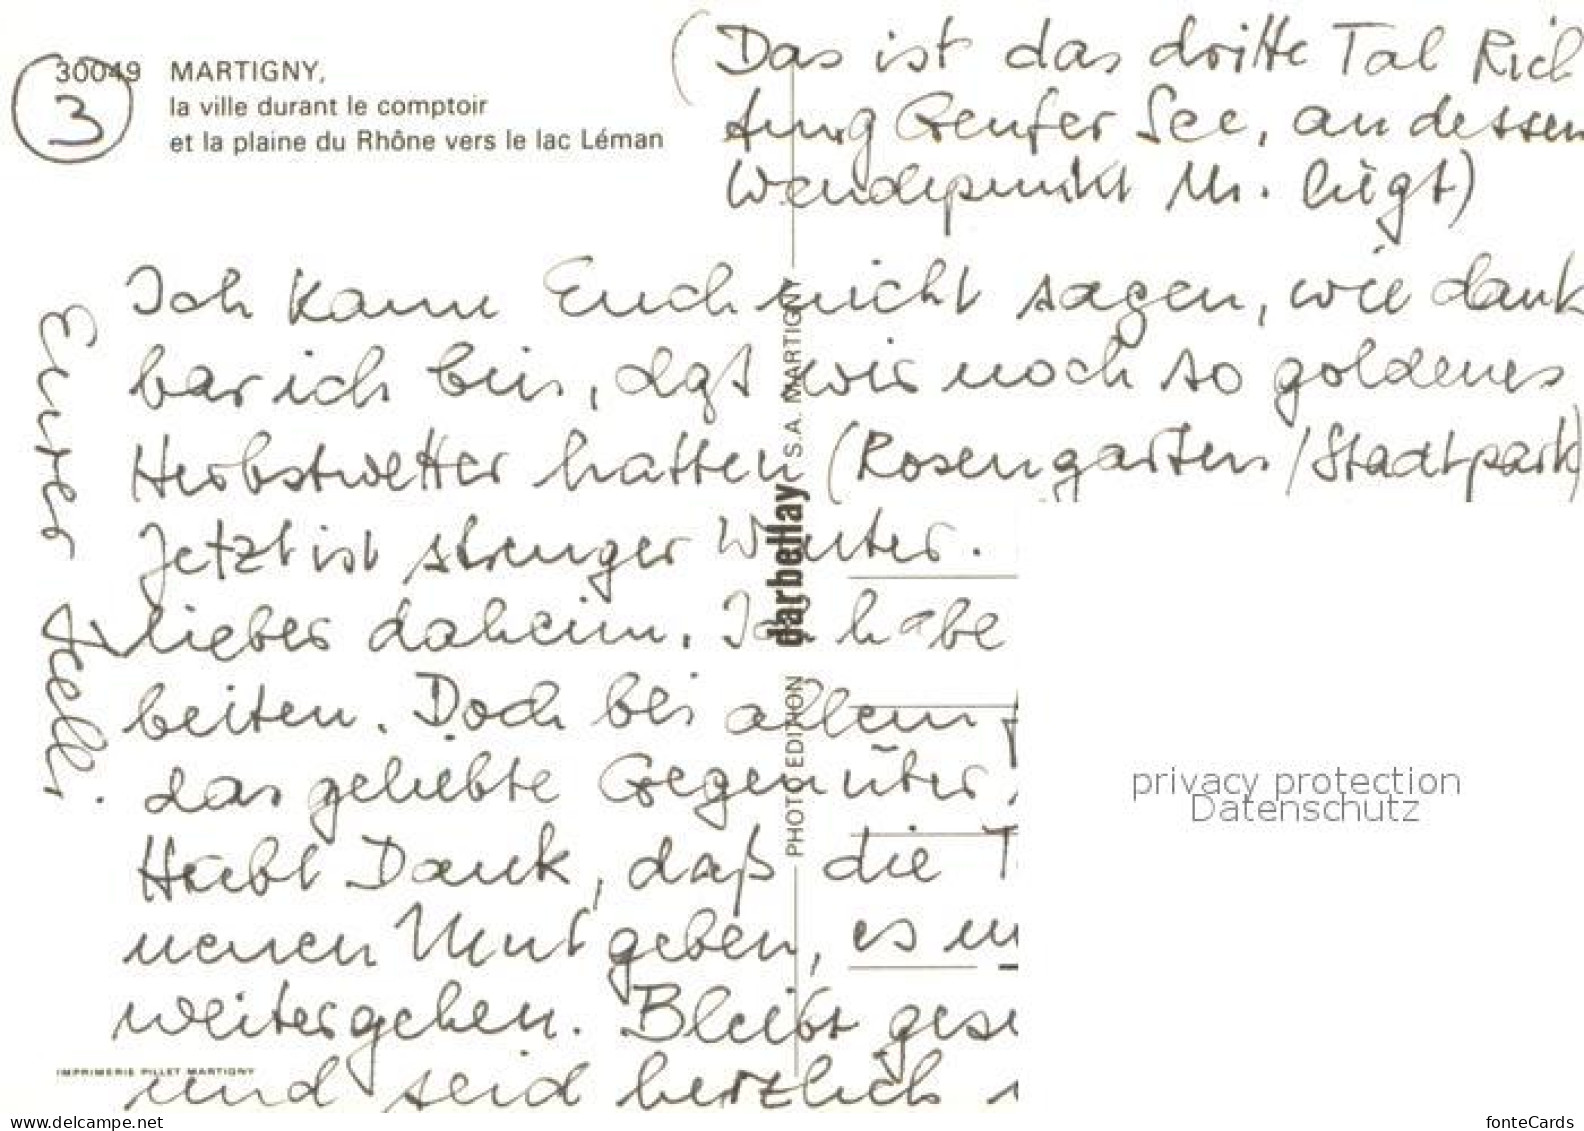 30049 MARTIGNY,
la ville durant le comptoir
et la plaine du Rhône vers le lac Léman
3
(Das ist das dritte Tal Rich
tung Genfer See, an dessen
Wendepunkt M. liegt)
Ich kann Euch nicht sagen, wie dank
bar ich bin, daß wir noch so goldenes
Herbstwetter hatten (Rosengarten/Stadtpark)
Jetzt ist strenger Winter.
lieber daheim. Ich habe
beiten. Doch bei allem
das geliebte Gegenüber
Habt Dank, daß die T
neuen Mut geben, es
weitergeben. Bleibt ges
und seid herzlich
Eurer
PHOTO EDITION darbellay S.A. MARTIGNY
IMPRIMERIE PILLET MARTIGNY
privacy protection
Datenschutz
www.delcampe.net
fonteCards